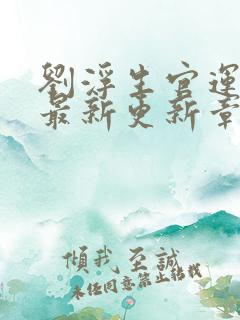 劉浮生官運
最新更新章
傾我至誠
未经同意禁止转载